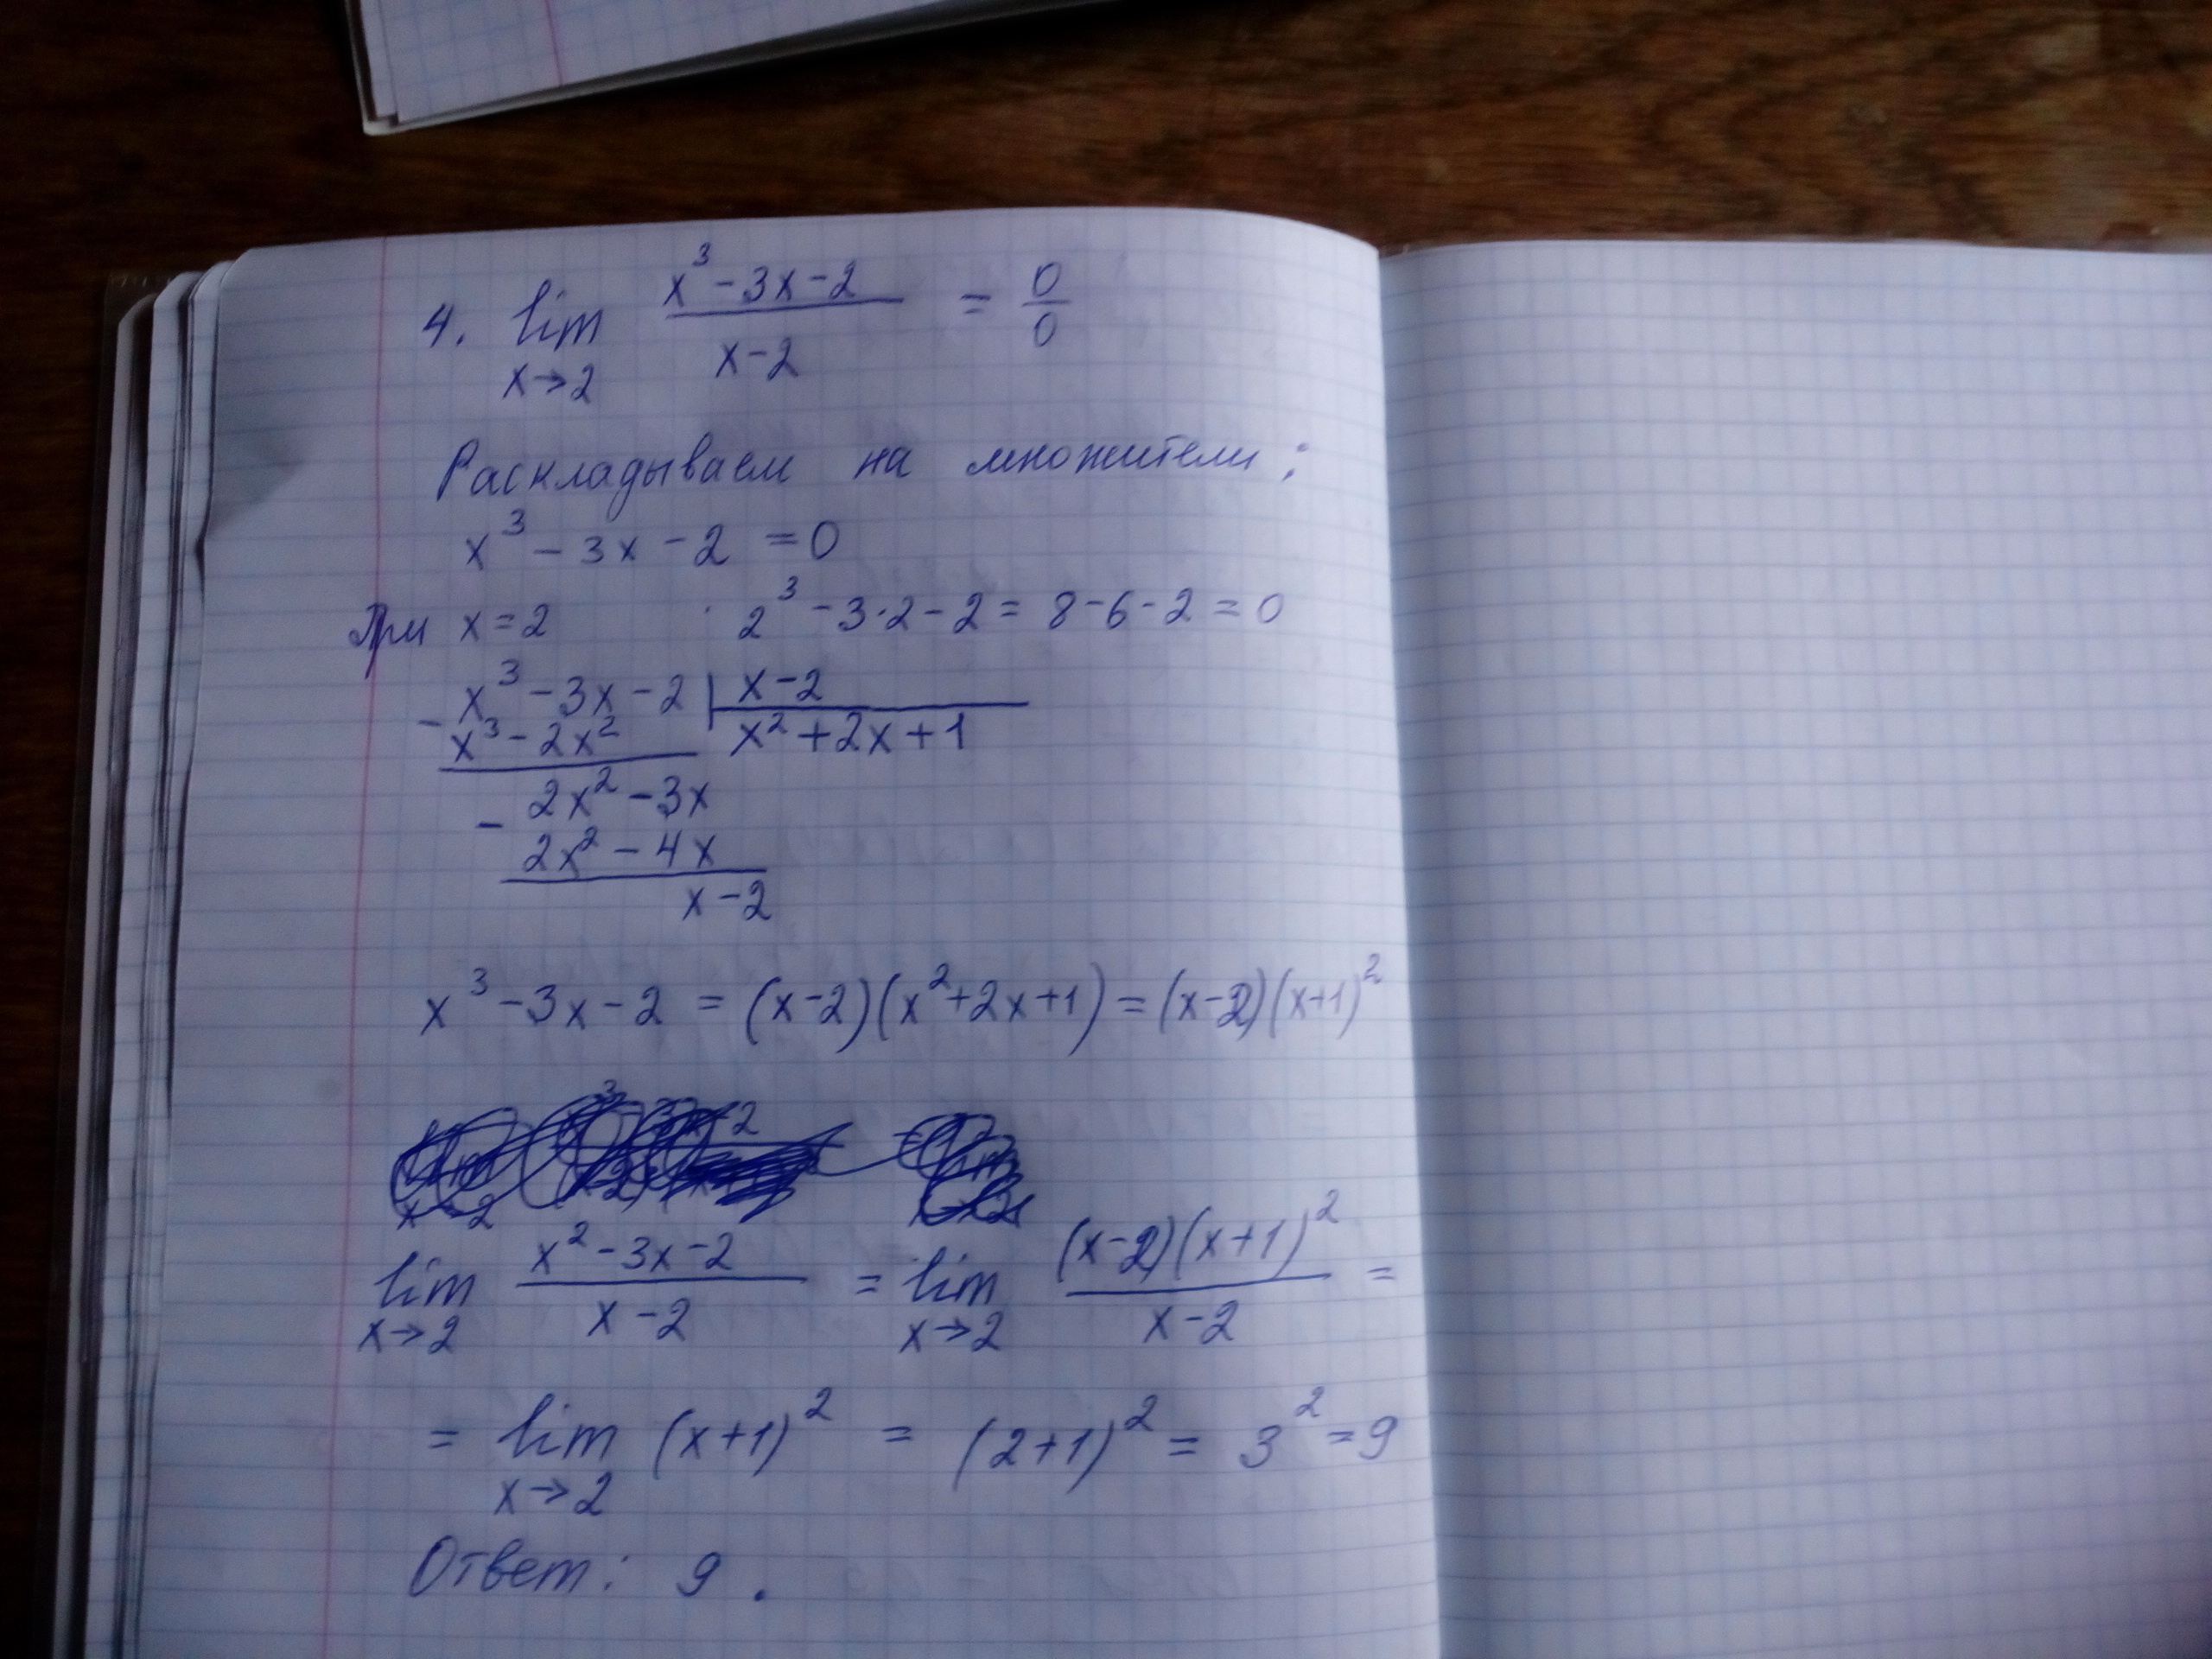 4. lim x³-3x-2 = 0
x→2 x-2 0
Раскладываем на множители:
x³ - 3x - 2 = 0
При x = 2 2³ - 3·2 - 2 = 8 - 6 - 2 = 0
- x³ - 3x - 2 | x - 2
x³ - 2x² x² + 2x + 1
- 2x² - 3x
2x² - 4x
x - 2
x³ - 3x - 2 = (x-2)(x²+2x+1) = (x-2)(x+1)²
lim x² - 3x - 2 = lim (x-2)(x+1)² =
x→2 x - 2 x→2 x - 2
= lim (x+1)² = (2+1)² = 3² = 9
x→2
Ответ: 9.